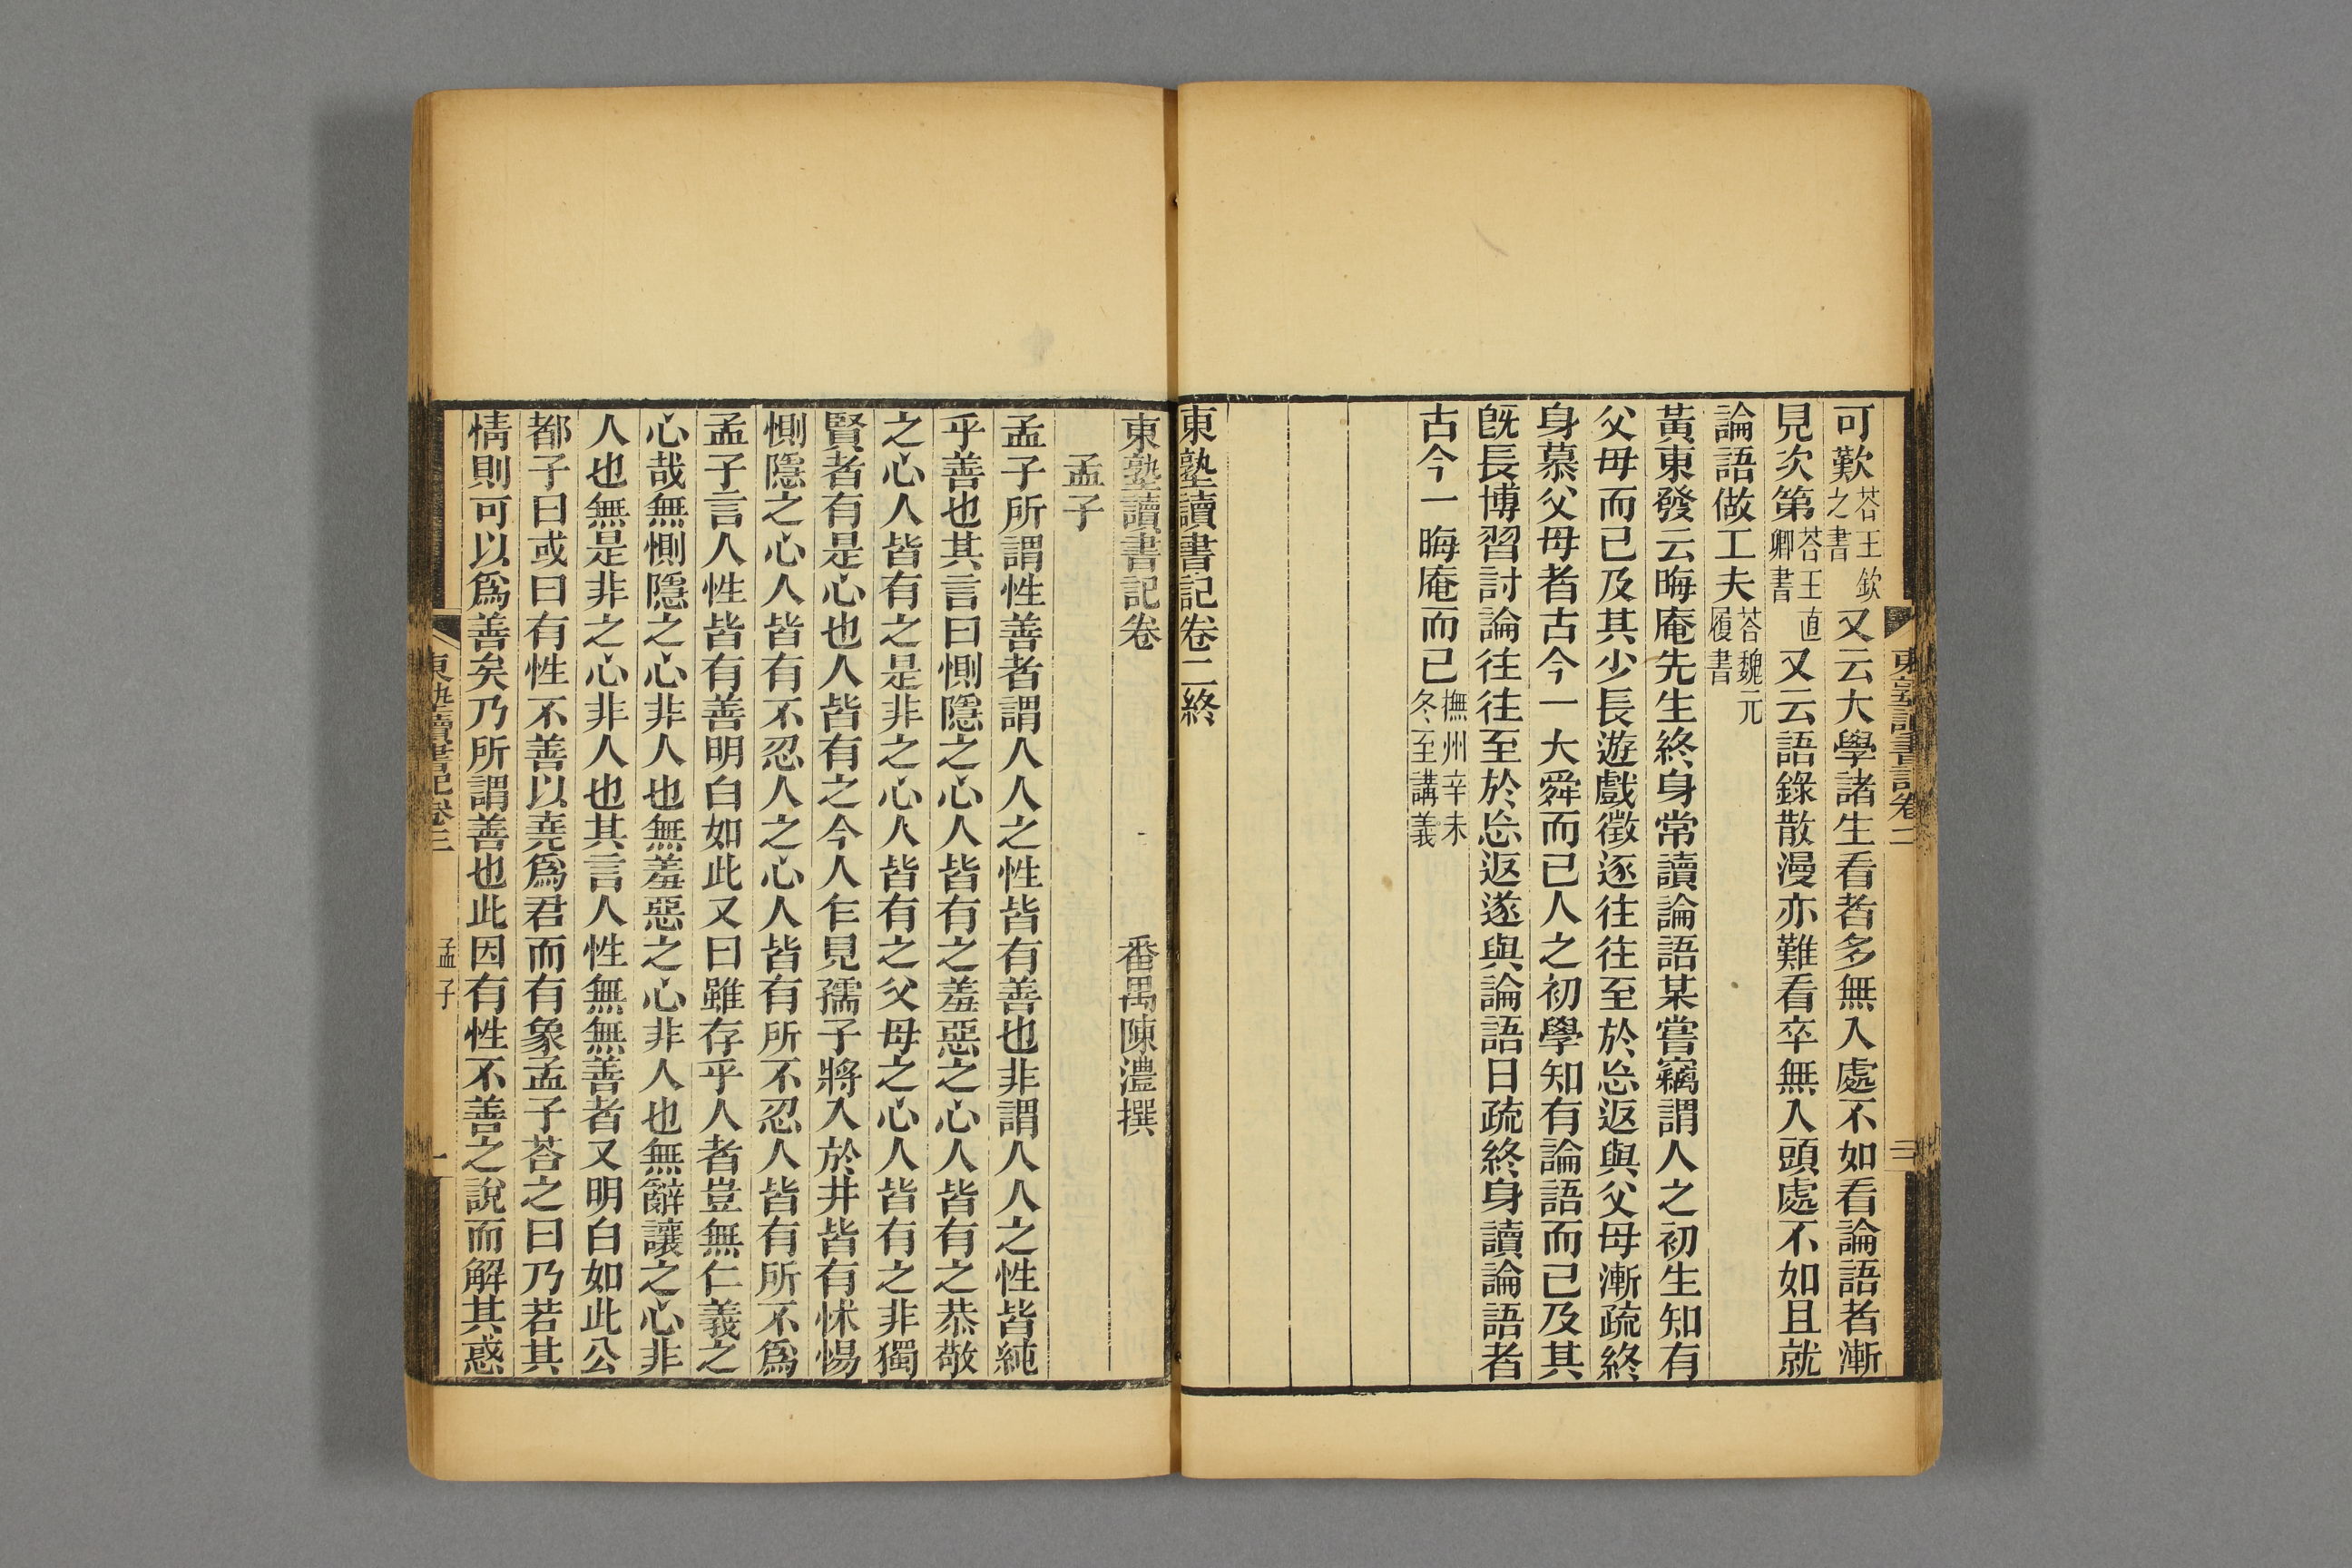 東塾讀書記卷二
三
可歎荅王欽之書又云大學諸生看者多無入處不如看論語者漸
見次第荅王直卿書又云語錄散漫亦難看卒無入頭處不如且就
論語做工夫荅魏元履書
黃東發云晦庵先生終身常讀論語某嘗竊謂人之初生知有
父母而已及其少長遊戲徵逐往往至於忘返與父母漸疏終
身慕父母者古今一大舜而已人之初學知有論語而已及其
旣長博習討論往往至於忘返遂與論語日疏終身讀論語者
古今一晦庵而已撫州辛未冬至講義
東塾讀書記卷二終
東塾讀書記卷
番禺陳澧撰
孟子
孟子所謂性善者謂人人之性皆有善也非謂人人之性皆純
乎善也其言曰惻隱之心人皆有之羞惡之心人皆有之恭敬
之心人皆有之是非之心人皆有之父母之心人皆有之非獨
賢者有是心也人皆有之今人乍見孺子將入於井皆有怵惕
惻隱之心人皆有不忍人之心人皆有所不忍人皆有所不爲
孟子言人性皆有善明白如此又曰雖存乎人者豈無仁義之
心哉無惻隱之心非人也無羞惡之心非人也無辭讓之心非
人也無是非之心非人也其言人性無無善者又明白如此公
都子曰或曰有性不善以堯爲君而有象孟子荅之曰乃若其
情則可以爲善矣乃所謂善也此因有性不善之說而解其惑
東塾讀書記卷三
孟子
一